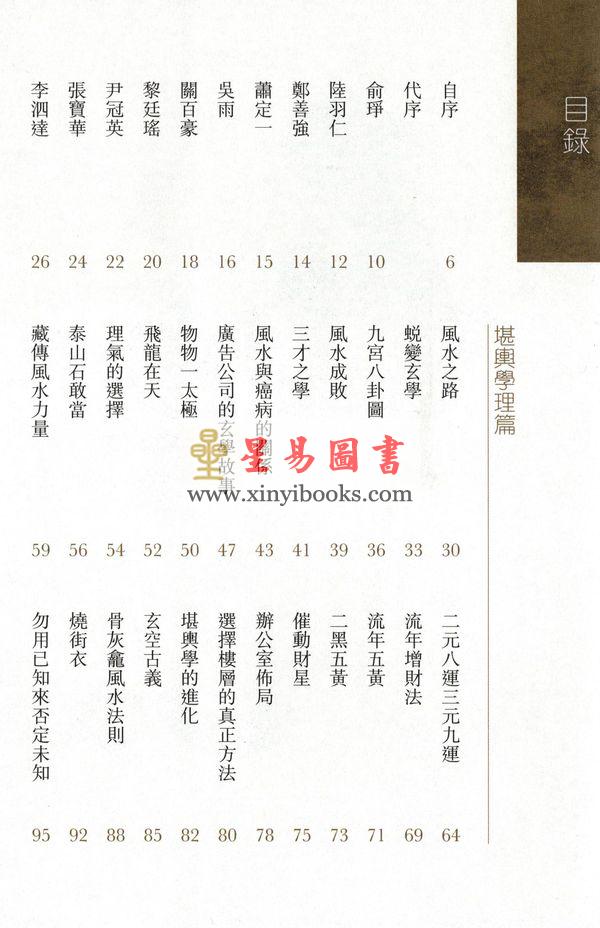 目錄
自序 6
代序
俞琤 10
陸羽仁 12
鄭善強 14
蕭定一 15
吳雨 16
關百豪 18
黎廷瑤 20
尹冠英 22
張寶華 24
李泗達 26
堪輿學理篇
風水之路 30
蛻變玄學 33
九宮八卦圖 36
風水成敗 39
三才之學 41
風水與癌病的關係 43
廣告公司的玄學故事 47
物物一太極 50
飛龍在天 52
理氣的選擇 54
泰山石敢當 56
藏傳風水力量 59
二元八運三元九運 64
流年增財法 69
流年五黃 71
二黑五黃 73
催動財星 75
辦公室佈局 78
選擇樓層的真正方法 80
堪輿學的進化 82
玄空古義 85
骨灰龕風水法則 88
燒街衣 92
勿用已知來否定未知 95
星易圖書
www.xinyibooks.com